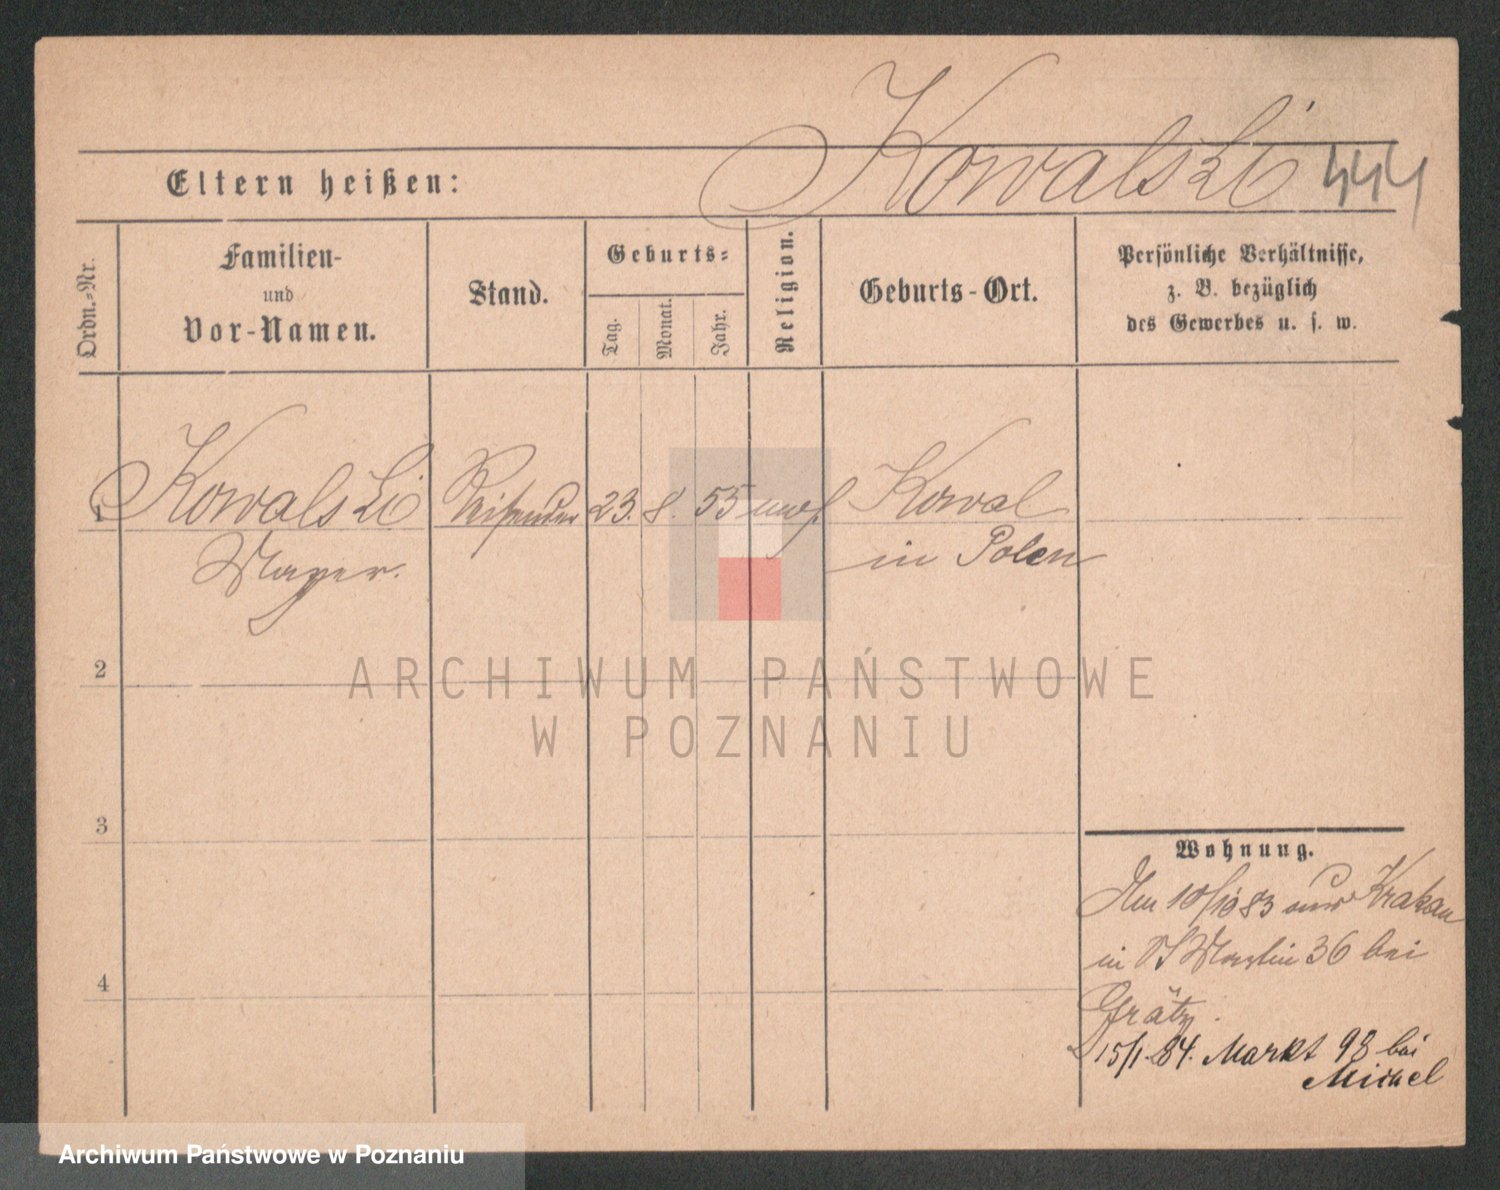 Kowalski 444
Eltern heißen:
Ordn.-Nr.
Familien-
und
Vor-Namen.
Stand.
Geburts-
Tag.
Monat.
Jahr.
Religion.
Geburts-Ort.
Persönliche Verhältnisse,
z. B. bezüglich
des Gewerbes u. s. w.
1 Kowalski Reisender 23. 8. 55 mos. Kowal
Mayer. in Polen
2
3
4
Wohnung.
Am 10/10 83 aus Krakau
in St Martin 36 bei
Grätz.
15/1. 84. Markt 98 bei
Michel
ARCHIWUM PAŃSTWOWE
W POZNANIU
Archiwum Państwowe w Poznaniu